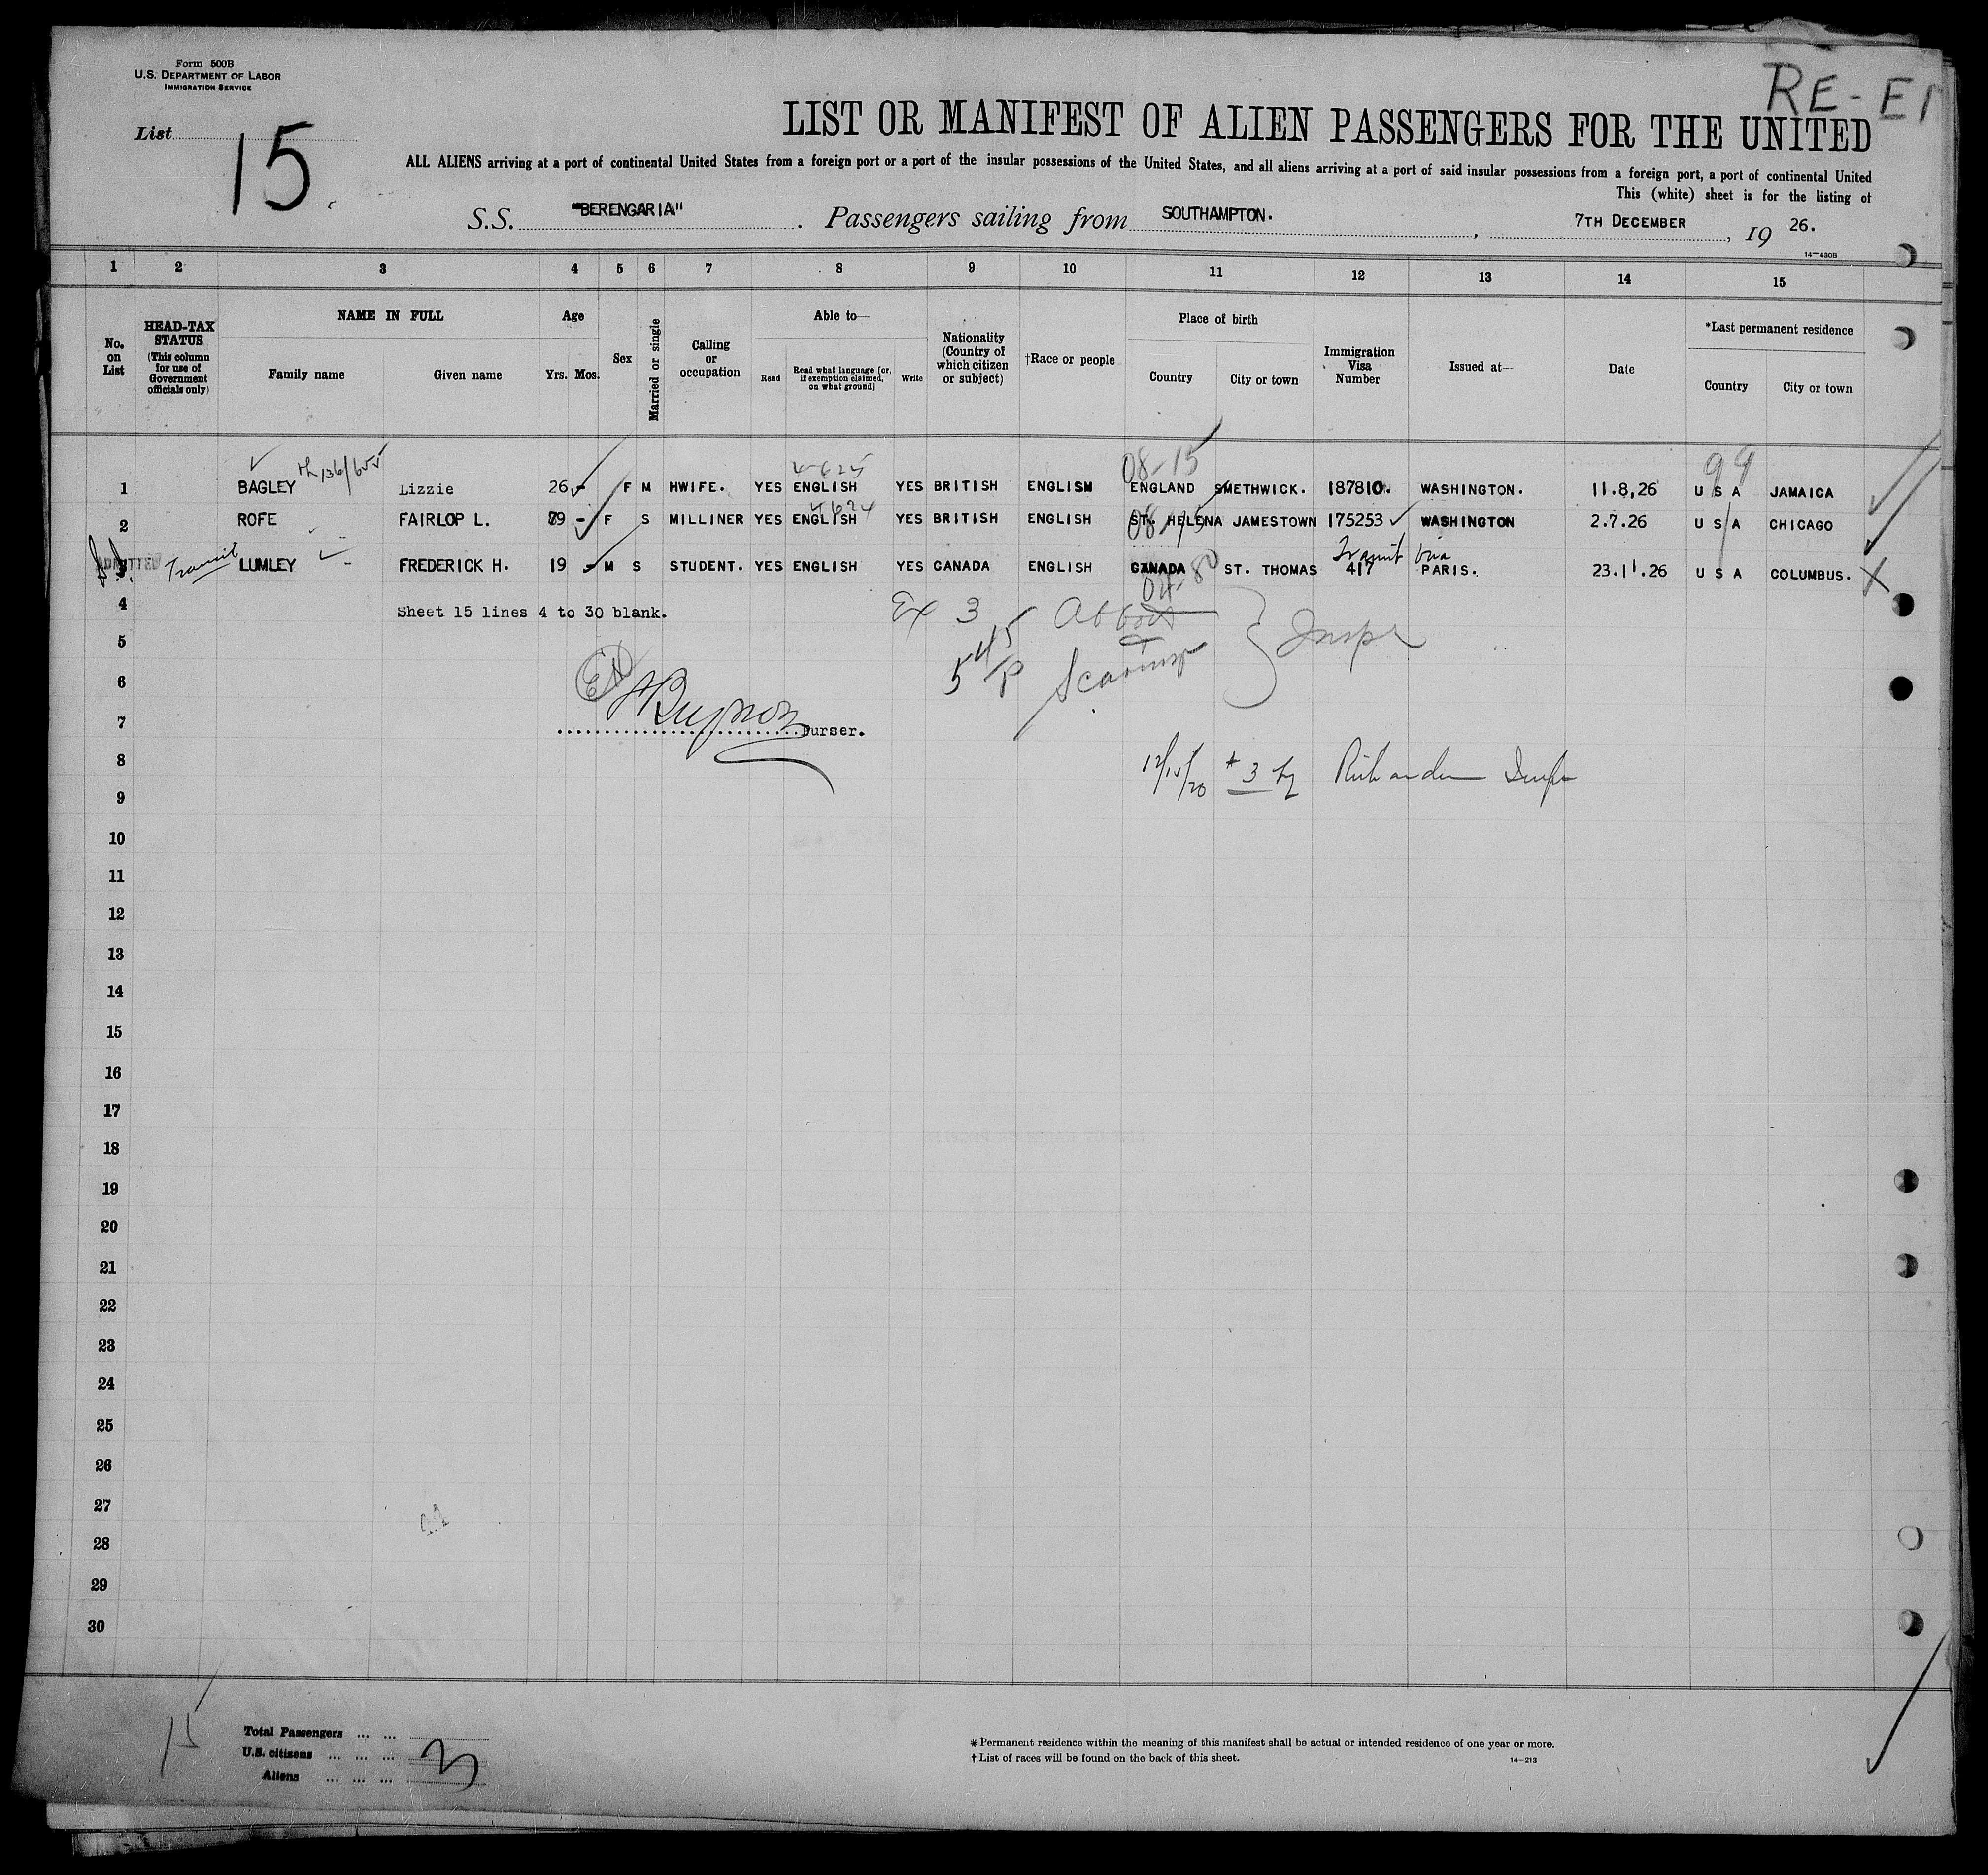 Form 500B
U.S. DEPARTMENT OF LABOR
IMMIGRATION SERVICE
RE-E
List 15.
LIST OR MANIFEST OF ALIEN PASSENGERS FOR THE UNITED
ALL ALIENS arriving at a port of continental United States from a foreign port or a port of the insular possessions of the United States, and all aliens arriving at a port of said insular possessions from a foreign port, a port of continental United
This (white) sheet is for the listing of
S.S. "BERENGARIA" . Passengers sailing from SOUTHAMPTON. , 7TH DECEMBER , 19 26.
14-430B
1 2 3 4 5 6 7 8 9 10 11 12 13 14 15
No. on List
HEAD-TAX STATUS (This column for use of Government officials only)
NAME IN FULL
Family name Given name
Age
Yrs. Mos.
Sex
Married or single
Calling or occupation
Able to—
Read Read what language [or, if exemption claimed, on what ground] Write
Nationality (Country of which citizen or subject)
†Race or people
Place of birth
Country City or town
Immigration Visa Number
Issued at—
Date
*Last permanent residence
Country City or town
4-625 08-15 99
1 BAGLEY Lizzie 26 - F M HWIFE. YES ENGLISH YES BRITISH ENGLISM ENGLAND SMETHWICK. 187810. WASHINGTON. 11.8,26 U S A JAMAICA
2 ROFE FAIRLOP L. - F S MILLINER YES ENGLISH YES BRITISH ENGLISH ST. HELENA JAMESTOWN 175253 WASHINGTON 2.7.26 U S A CHICAGO
ADMITTED Transit Transit Via
3 LUMLEY FREDERICK H. 19 - M S STUDENT. YES ENGLISH YES CANADA ENGLISH CANADA ST. THOMAS 417 PARIS. 23.11.26 U S A COLUMBUS.
4 Sheet 15 lines 4 to 30 blank. Ex 3 Abbott
5 Inspr
6
7 Purser.
8 #3 by Richardson Insp
9
10
11
12
13
14
15
16
17
18
19
20
21
22
23
24
25
26
27
28
29
30
15
Total Passengers ... ...
U.S. citizens ... ... ...
Aliens ... ... ...
3
*Permanent residence within the meaning of this manifest shall be actual or intended residence of one year or more.
†List of races will be found on the back of this sheet. 14-213